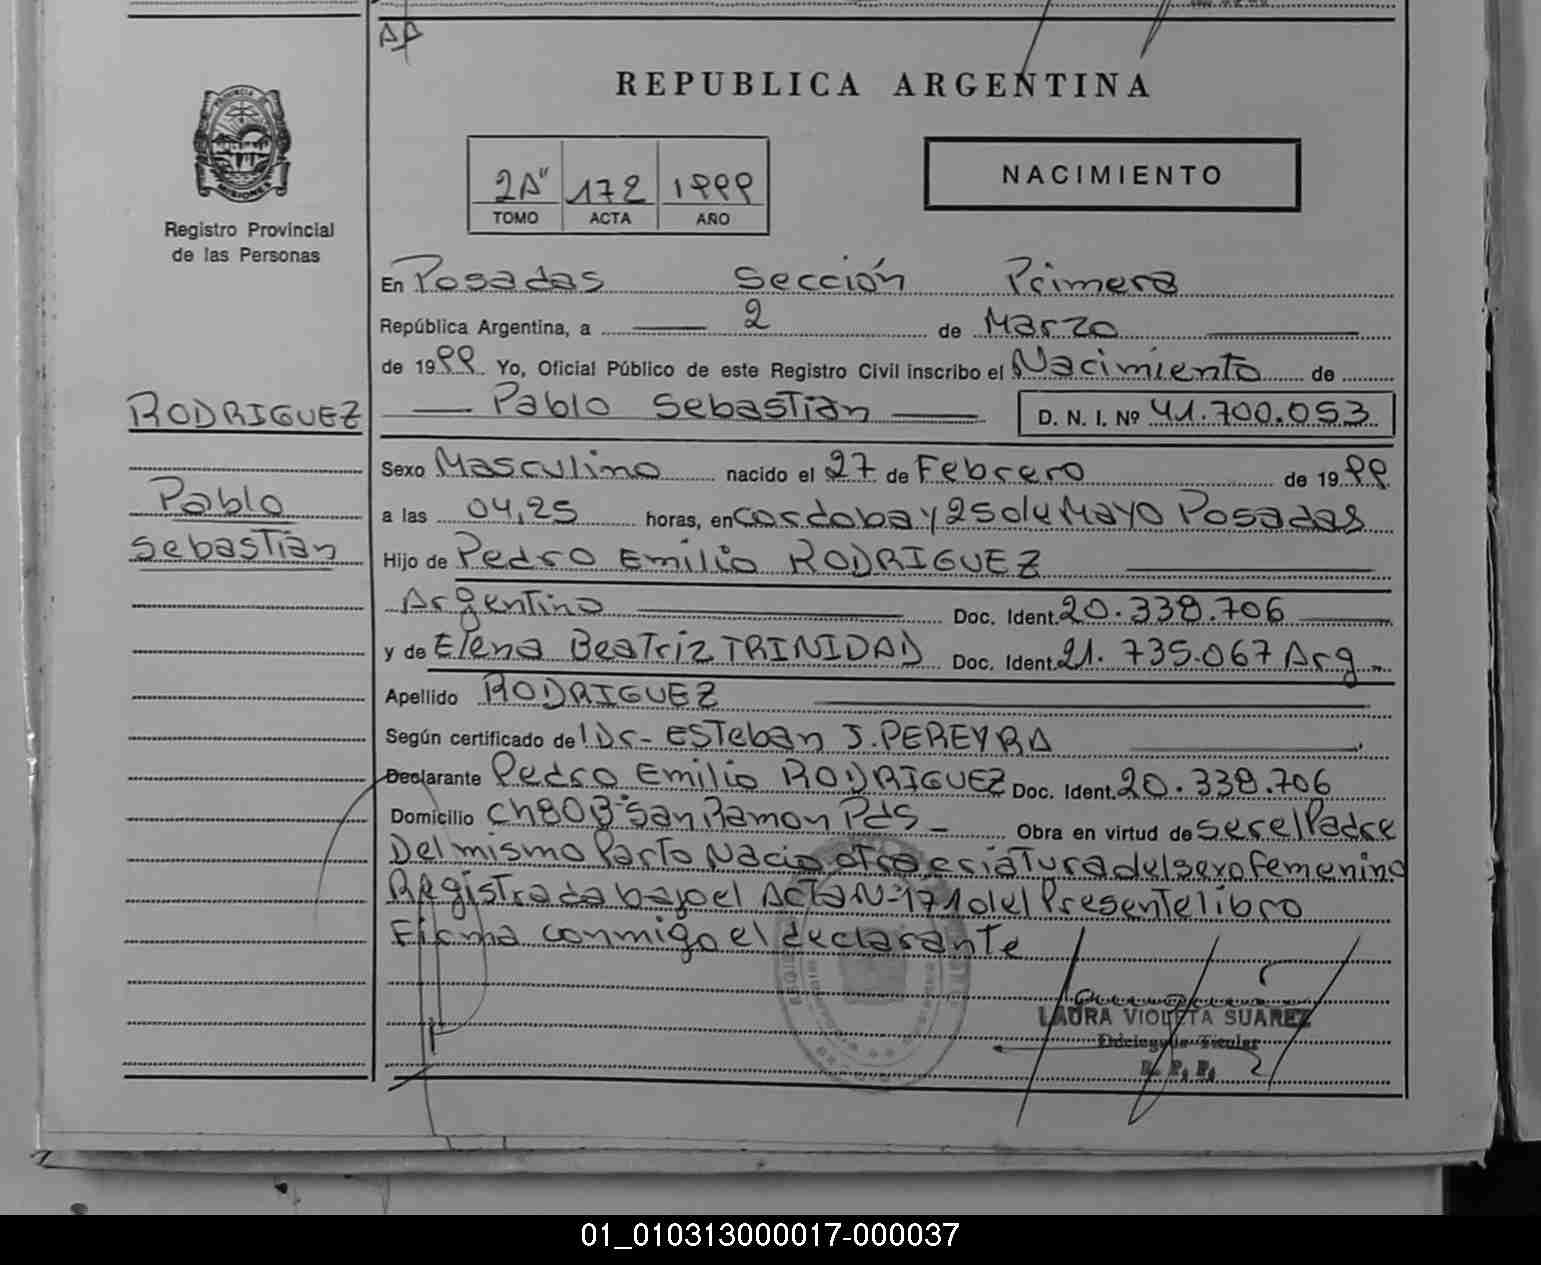 AP
REPUBLICA ARGENTINA
PROVINCIA
MISIONES
Registro Provincial
de las Personas
2A" 172 1999
TOMO ACTA AÑO
NACIMIENTO
En Posadas Sección Primera
República Argentina, a 2 de Marzo
de 1999 Yo, Oficial Público de este Registro Civil inscribo el Nacimiento de
RODRIGUEZ
Pablo Sebastián D. N. I. Nº 41.700.053
Pablo
Sebastián
Sexo Masculino nacido el 27 de Febrero de 1999
a las 04,25 horas, en Cordoba y 25 de Mayo Posadas
Hijo de Pedro Emilio RODRIGUEZ
Argentino Doc. Ident. 20.338.706
y de Elena Beatriz TRINIDAD Doc. Ident. 21.735.067 Arg
Apellido RODRIGUEZ
Según certificado del Dr- Esteban J. PEREYRA
Declarante Pedro Emilio RODRIGUEZ Doc. Ident. 20.338.706
Domicilio Ch 80 B° San Ramon Pds Obra en virtud de ser el Padre
Del mismo Parto Nacio otra criatura del sexo femenino
Registrada bajo el Acta N=171 del Presente libro
Firma conmigo el declarante
LAURA VIOLETA SUAREZ
Titular
R. P. P.
01_010313000017-000037